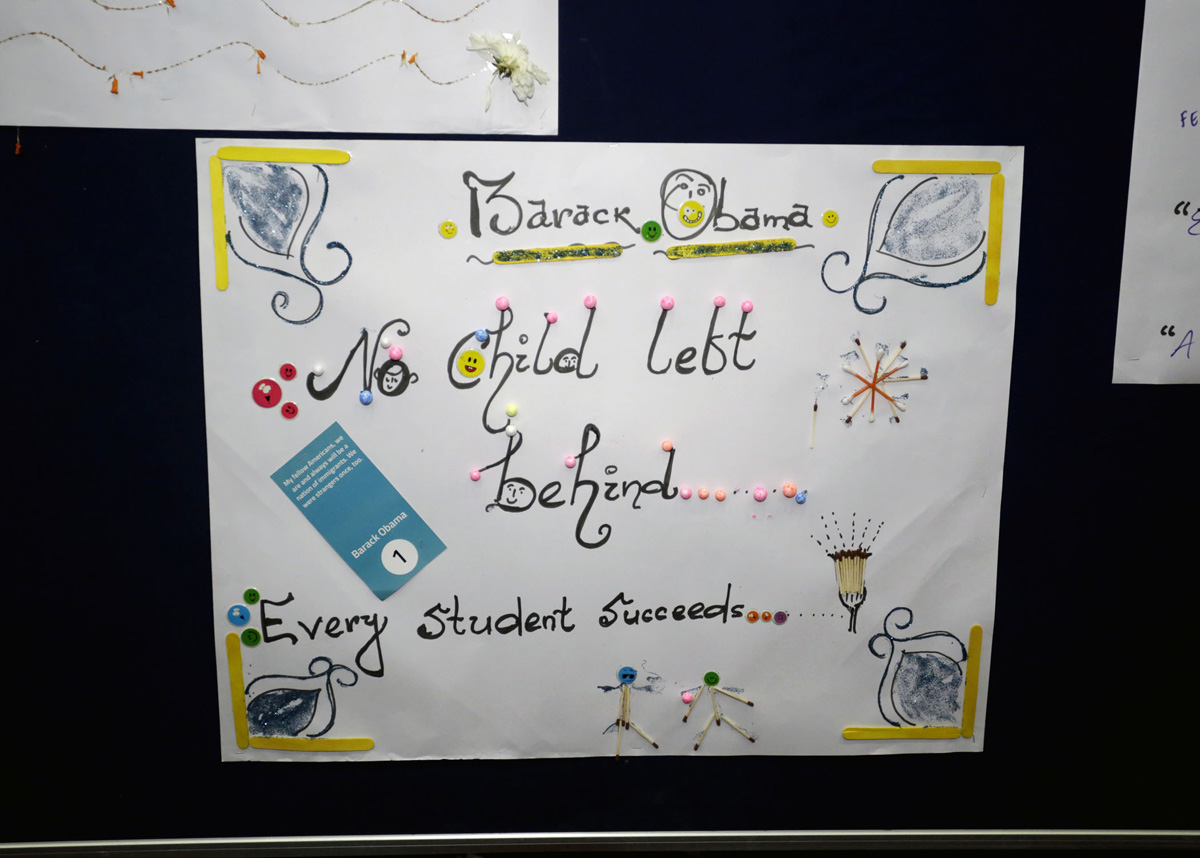 Barack Obama
No Child left
behind.....
My fellow Americans, we
are and always will be a
nation of immigrants. We
were strangers once, too.
Barack Obama
1
Every Student Succeeds
FE
“
“A